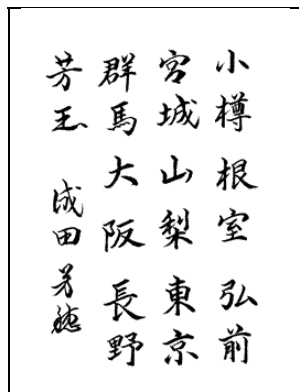 小樽 根室 弘前
宮城 山梨 東京
群馬 大阪 長野
芳玉 成田芳穂